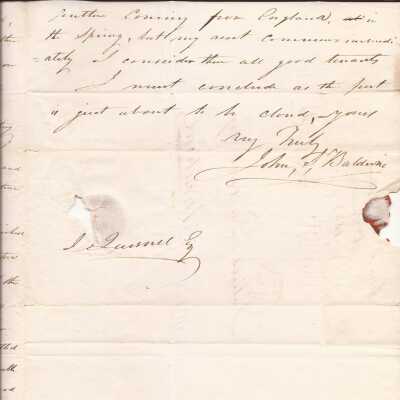 Coming from England, in
the Spring, but my rent commences immedi=
=ately I consider them all good tenants
I must conclude as the post
is just about to be closed, yours
very Truly
John Baldwin
Esq
on
and
the